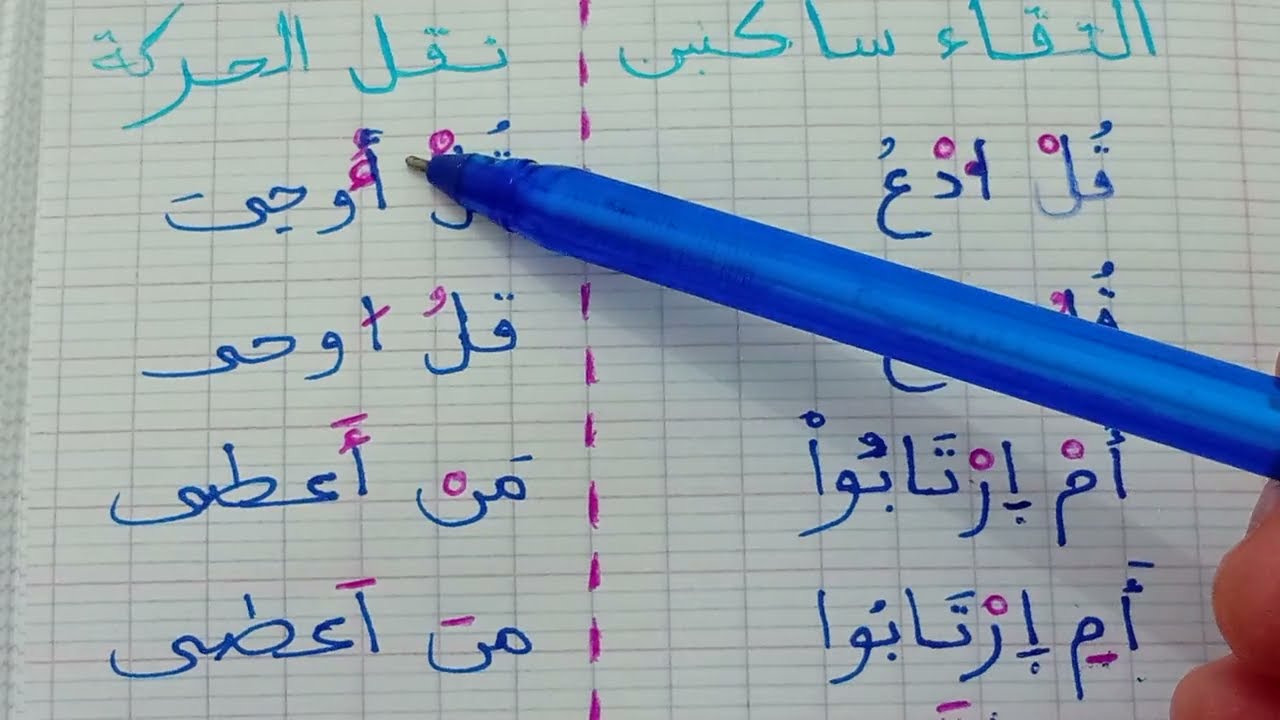 التقاء ساكنين
قُلْ ادْعُ
أَمْ اِرْتَابُواْ
أَمِ اِرْتَابُوا
نقل الحركة
أُوحِيَ
قلُ اوحى
مَنْ أَعطى
منَ اَعطى